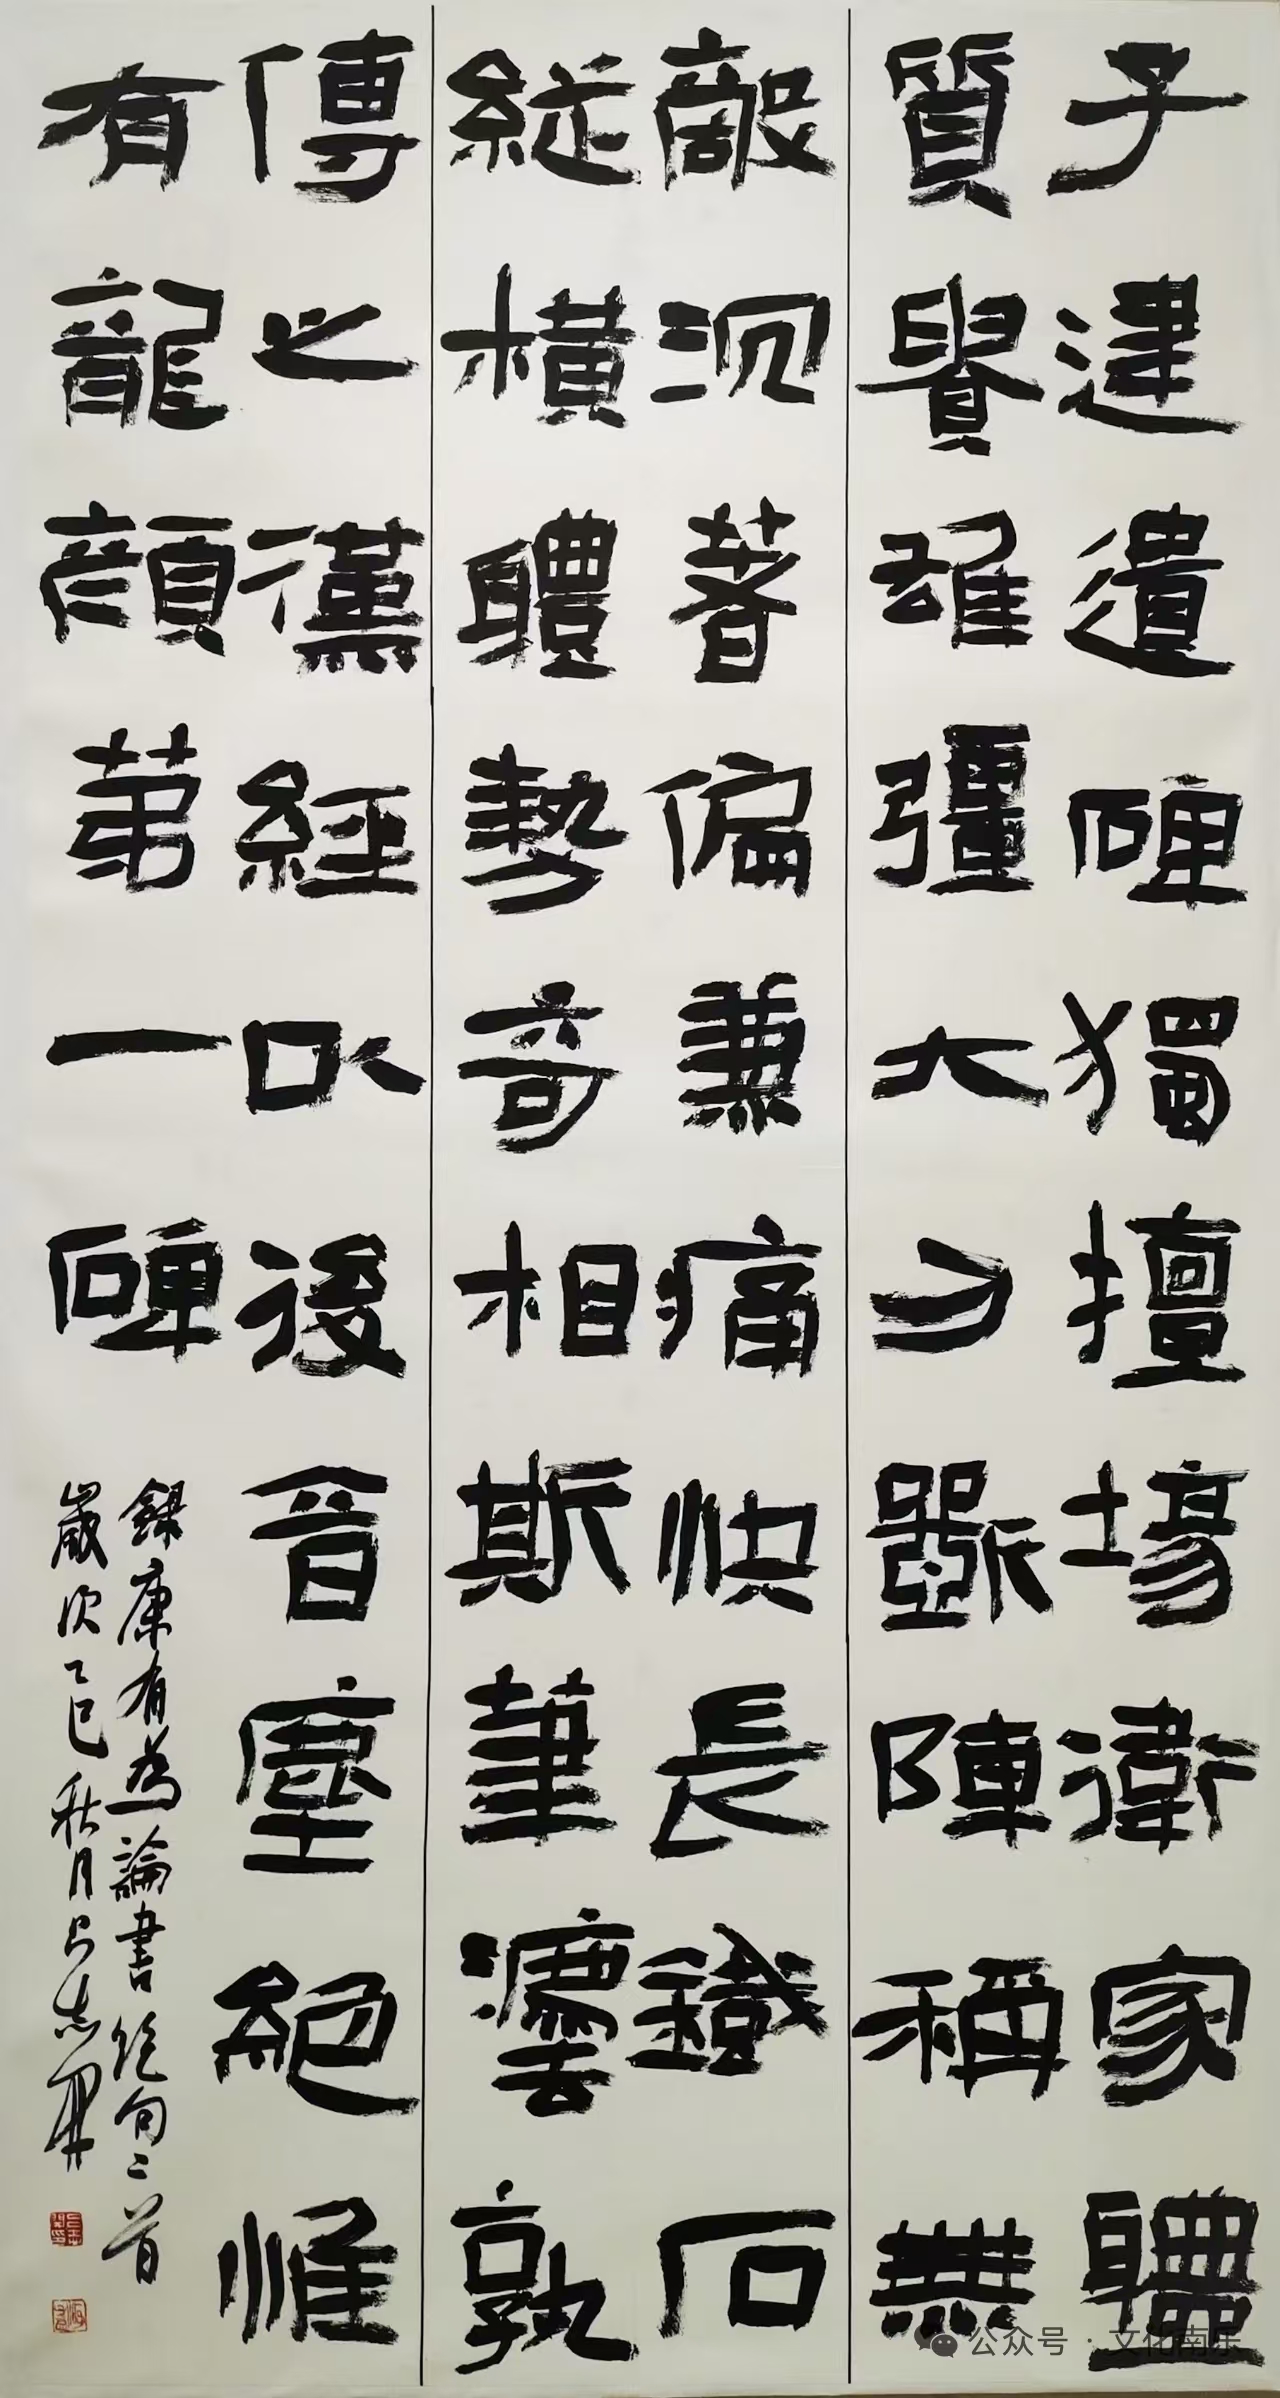 子建遺碑獨擅場衛家體
質覺雄彊大刀斵陣稱無
敵沉著偏兼痛快長鐵石
縱橫體勢奇相斯筆灋孰
傳之漢經以後音塵絕惟
有龍顏第一碑
錄康有為論書絕句二首
歲次乙巳秋月吕志開
公众号 · 文化南乐